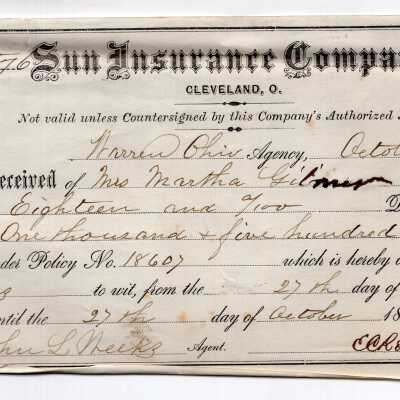 Sun Insurance Compa
CLEVELAND, O.
Not valid unless Countersigned by this Company's Authorized
Warren Ohio Agency, Octo
eceived of Mrs Martha
Eighteen and /100 D
One thousand & five hundred
der Policy No. 18607 which is hereby
to wit, from the 27th day of
ntil the 27th day of October 18
hn L Weeks Agent.